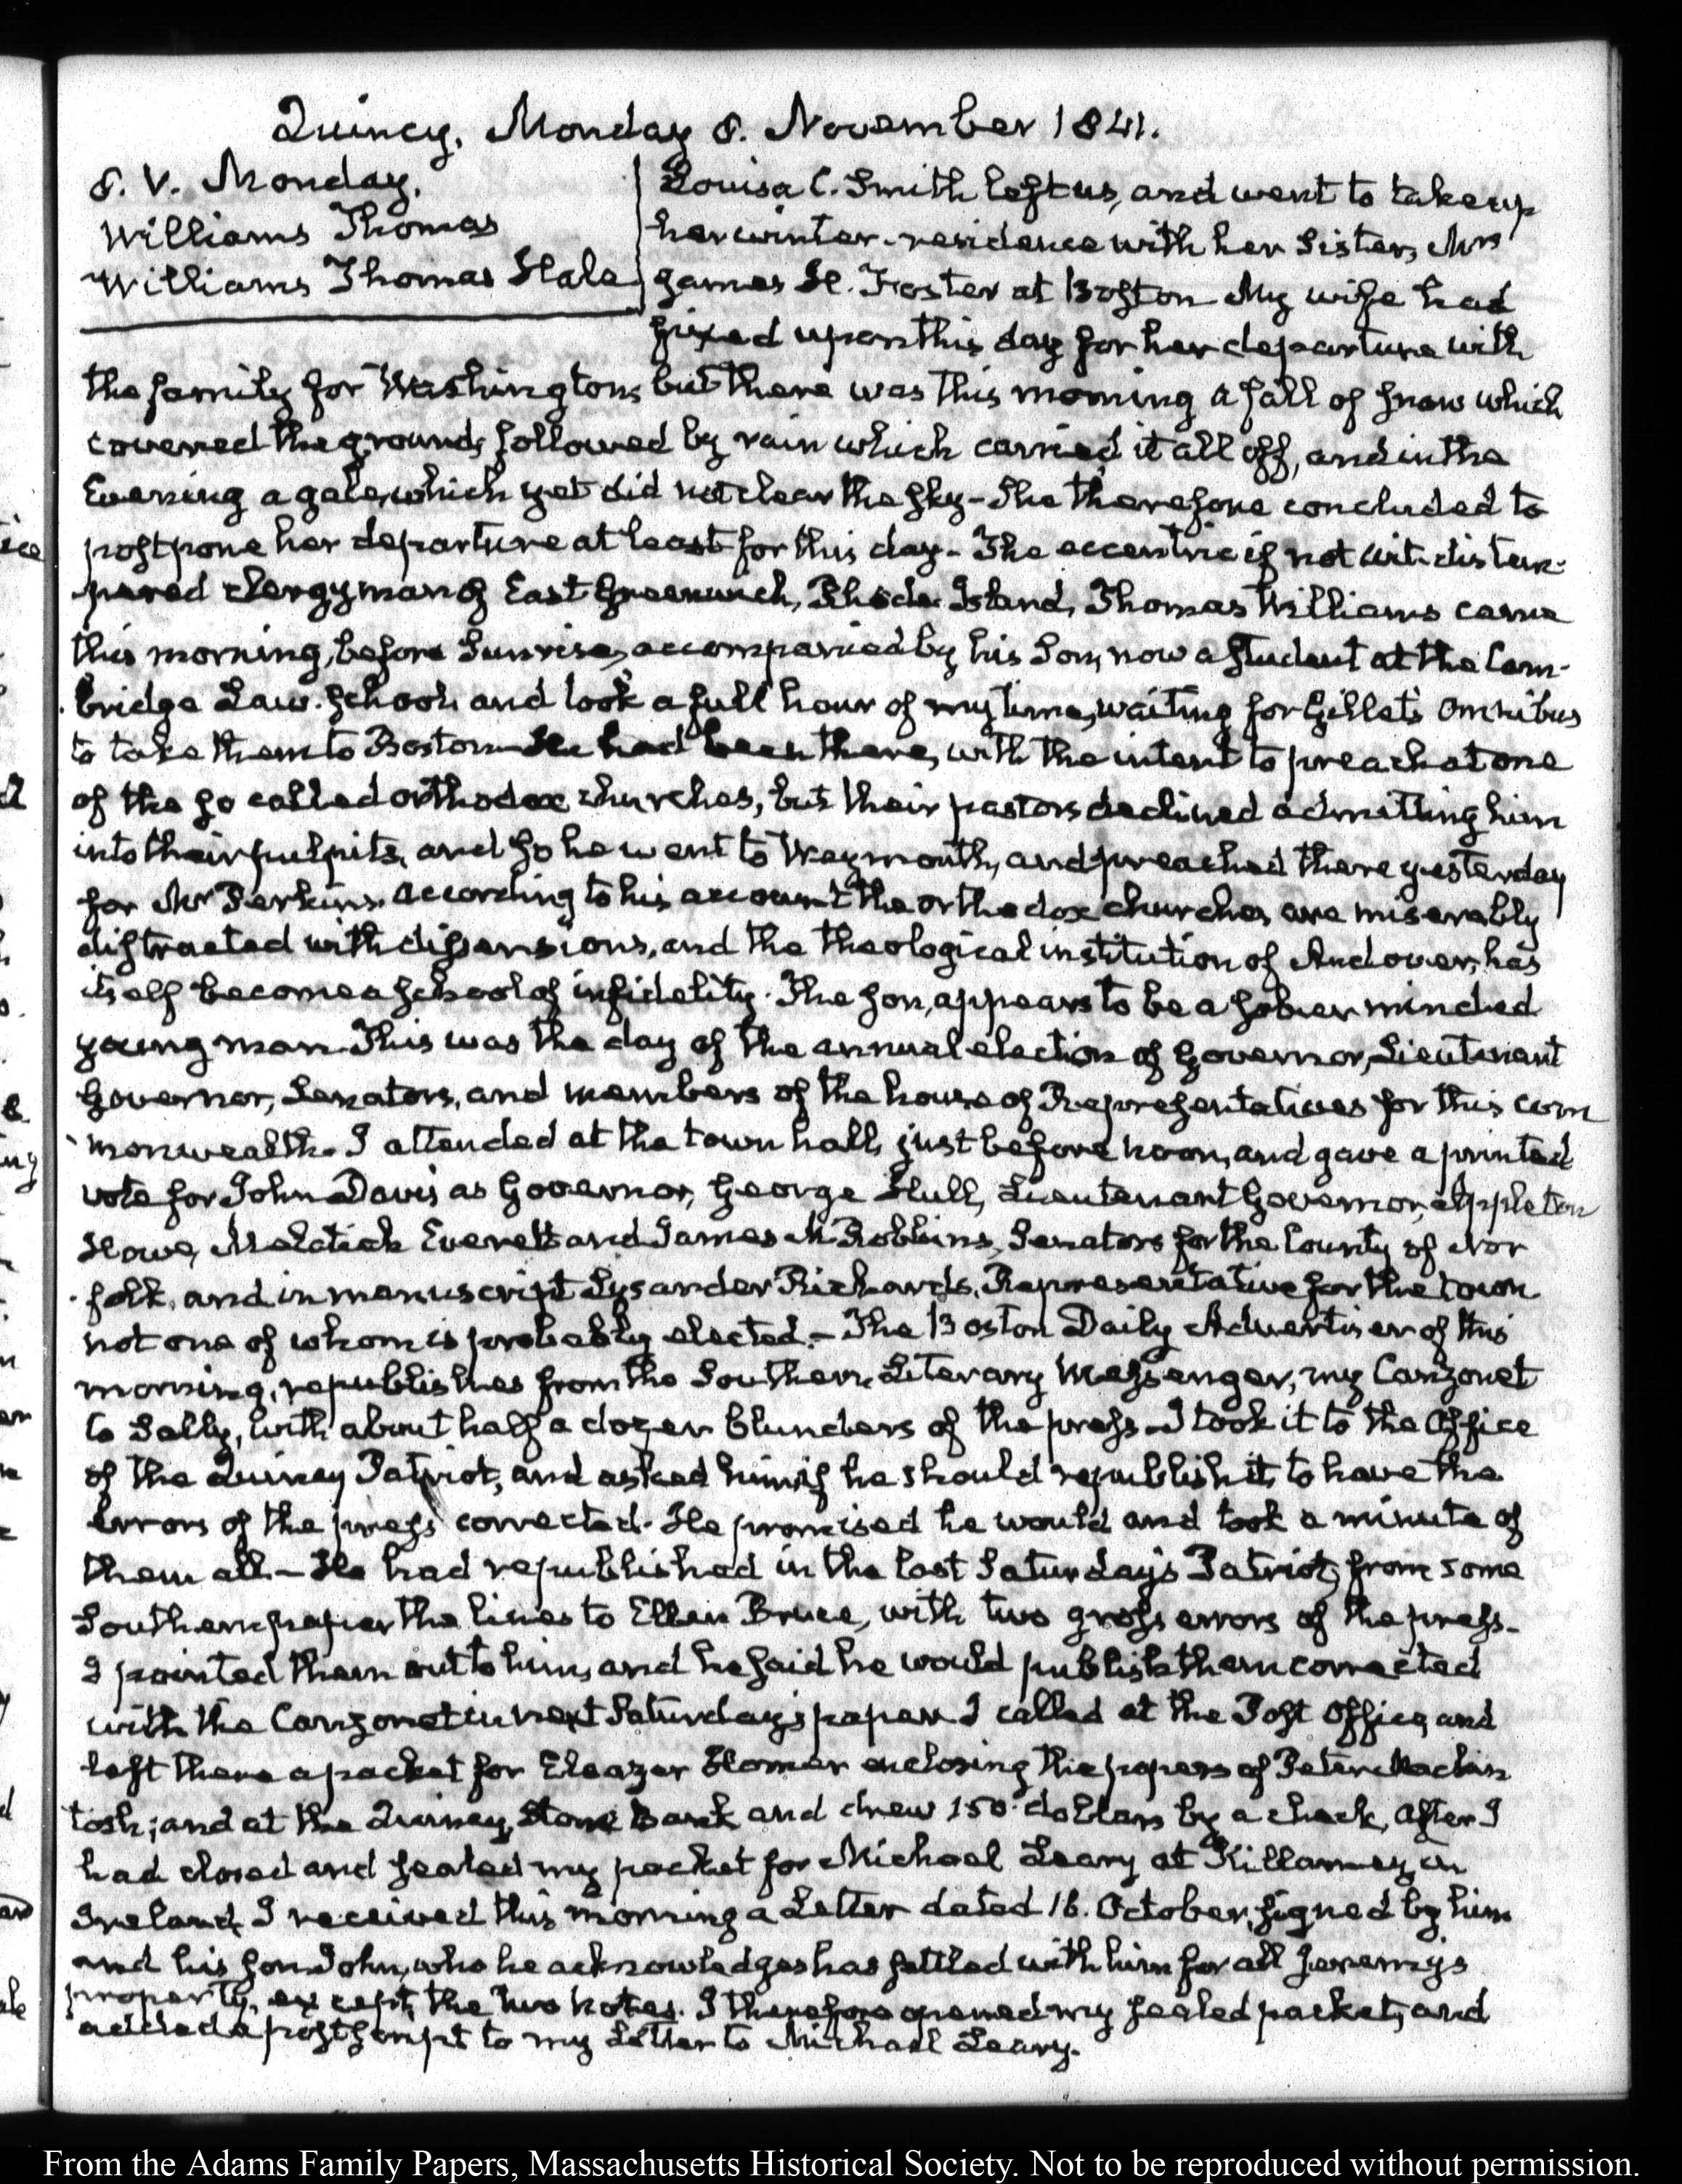 Quincy, Monday 8. November 1841.
8. V. Monday.
Williams Thomas
Williams Thomas Hale
Louisa C. Smith left us, and went to take up
her winter-residence with her Sister, Mrs
James H. Foster at Boston My wife had
fixed upon this day for her departure with
the family for Washington, but there was this morning a fall of snow which
covered the ground, followed by rain which carried it all off, and in the
Evening a gale, which yet did not clear the sky - She therefore concluded to
postpone her departure at least for this day - The eccentric if not wit-distem-
pered clergyman of East-Greenwich, Rhode Island, Thomas Williams came
this morning, before Sunrise, accompanied by his Son, now a student at the Cam-
bridge Law-School, and took a full hour of my time, waiting for Gillet's Omnibus
to take them to Boston He had been there, with the intent to preach at one
of the so called orthodox churches, but their pastors declined admitting him
into their pulpits, and so he went to Weymouth, and preached there yesterday
for Mr Perkins. According to his account the orthodox churches are miserably
distracted with dissensions, and the theological institution of Andover, has
itself become a school of infidelity. The son, appears to be a sober minded
young man This was the day of the annual election of Governor, Lieutenant
Governor, Senators, and members of the house of Representatives for this com
monwealth. I attended at the town hall, just before noon, and gave a printed
vote for John Davis as Governor, George Hull, Lieutenant Governor, Appleton
Howe, Melatiah Everett and James M Robbins, Senators for the County of Nor
folk, and in manuscript Lysander Richards, Representative for the town
not one of whom is probably elected. - The Boston Daily Advertiser of this
morning, republishes from the Southern Literary Messenger, my Canzonet
to Sally, with about half a dozen blunders of the press - I took it to the Office
of the Quincy Patriot, and asked him, if he should republish it, to have the
errors of the press corrected. He promised he would and took a minute of
them all - He had republished in the last Saturday's Patriot, from some
Southern paper the lines to Ellen Bruce, with two gross errors of the press -
I pointed them out to him, and he said he would publish them corrected
with the Canzonet in next Saturday's paper I called at the Post Office, and
left there a packet for Eleazer Homer enclosing the papers of Peter Mackin
tosh; and at the Quincy, Stone Bank and drew 150 dollars by a check, After I
had closed and sealed my packet for Michael Leary at Killarney in
Ireland, I received this morning a Letter dated 16. October, signed by him
and his son John, who he acknowledges has settled with him for all Jeremy's
property, except the two notes. I therefore opened my sealed packet, and
added a postscript to my Letter to Michael Leary.
From the Adams Family Papers, Massachusetts Historical Society. Not to be reproduced without permission.